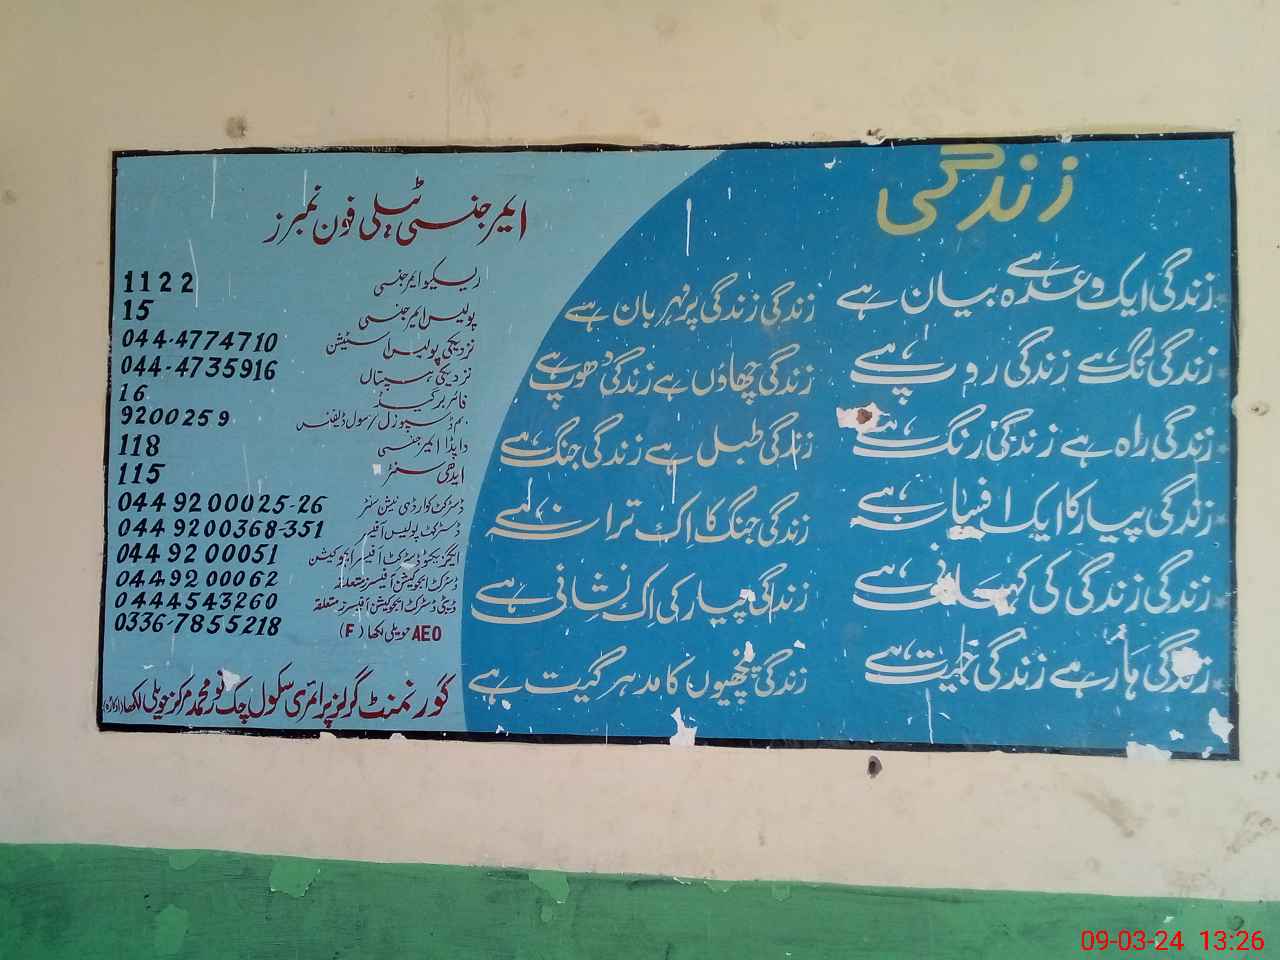 زندگی
زندگی ایک وعدہ ہے بیان ہے
زندگی زندگی پر مہربان ہے
زندگی سنگ ہے زندگی روپ ہے
زندگی چھاؤں ہے زندگی دھوپ ہے
زندگی راہ ہے زندگی رنگ ہے
زندگی طبل ہے زندگی جنگ ہے
زندگی پیار کا ایک افسانہ ہے
زندگی جنگ کا اِک ترانہ لیے
زندگی زندگی کی کہانی ہے
زندگی پیار کی اِک نشانی ہے
زندگی ہار ہے زندگی جیت ہے
زندگی پنچھیوں کا مدہر گیت ہے
ایمرجنسی ٹیلی فون نمبرز
ریسکیو ایمرجنسی 1122
پولیس ایمرجنسی 15
نزدیکی پولیس اسٹیشن 044-4774710
نزدیکی ہسپتال 044-4735916
فائر بریگیڈ 16
بم ڈسپوزل/سول ڈیفنس 9200259
واپڈا ایمرجنسی 118
ایدھی سنٹر 115
ڈسٹرکٹ کوارڈی نیشن سنٹر 044 9200025-26
ڈسٹرکٹ پولیس آفیسر 044 9200368-351
ایگزیکٹو ڈسٹرکٹ آفیسر ایجوکیشن 044 9200051
ڈسٹرکٹ ایجوکیشن آفیسرز متعلقہ 0449200062
ڈپٹی ڈسٹرکٹ ایجوکیشن آفیسرز متعلقہ 0444543260
AEO حویلی لکھا (F) 0336-7855218
گورنمنٹ گرلز پرائمری سکول چک نور محمد مرکز حویلی لکھا (اوکاڑہ)
09-03-24 13:26